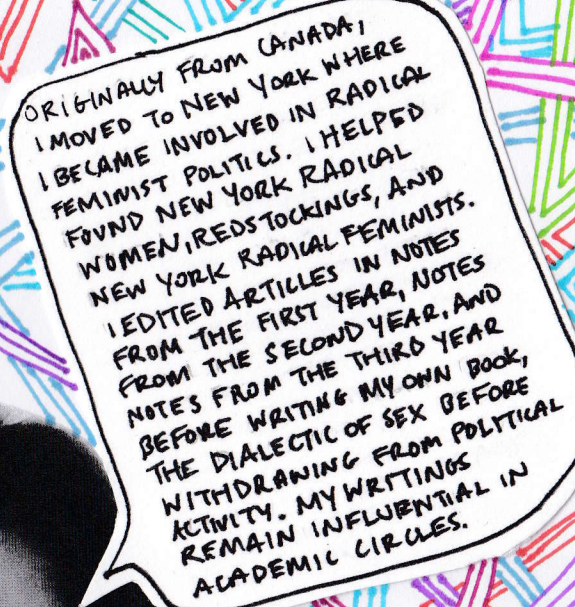 ORIGINALLY FROM CANADA,
I MOVED TO NEW YORK WHERE
I BECAME INVOLVED IN RADICAL
FEMINIST POLITICS. I HELPED
FOUND NEW YORK RADICAL
WOMEN, REDSTOCKINGS, AND
NEW YORK RADICAL FEMINISTS.
I EDITED ARTICLES IN NOTES
FROM THE FIRST YEAR, NOTES
FROM THE SECOND YEAR, AND
NOTES FROM THE THIRD YEAR
BEFORE WRITING MY OWN BOOK,
THE DIALECTIC OF SEX BEFORE
WITHDRAWING FROM POLITICAL
ACTIVITY. MY WRITINGS
REMAIN INFLUENTIAL IN
ACADEMIC CIRCLES.